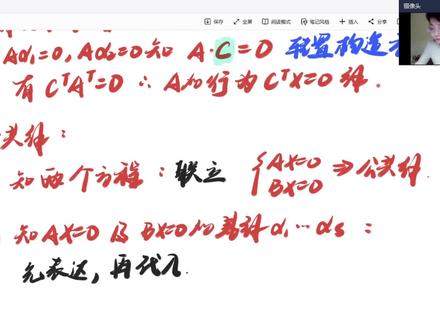 摄像头
保存 全屏 阅读模式 笔记风格 截图 分享
Aα₁=0, Aα₂=0 知 A·C=0 转置构造
有 CᵀAᵀ=0 ∴ A的行为 CᵀX=0 解.
共解:
知两个方程: 联立 { AX=0 BX=0 ⇒ 公共解.
知 AX=0 及 BX=0 的基解 α₁…αs :
先表达, 再代入.